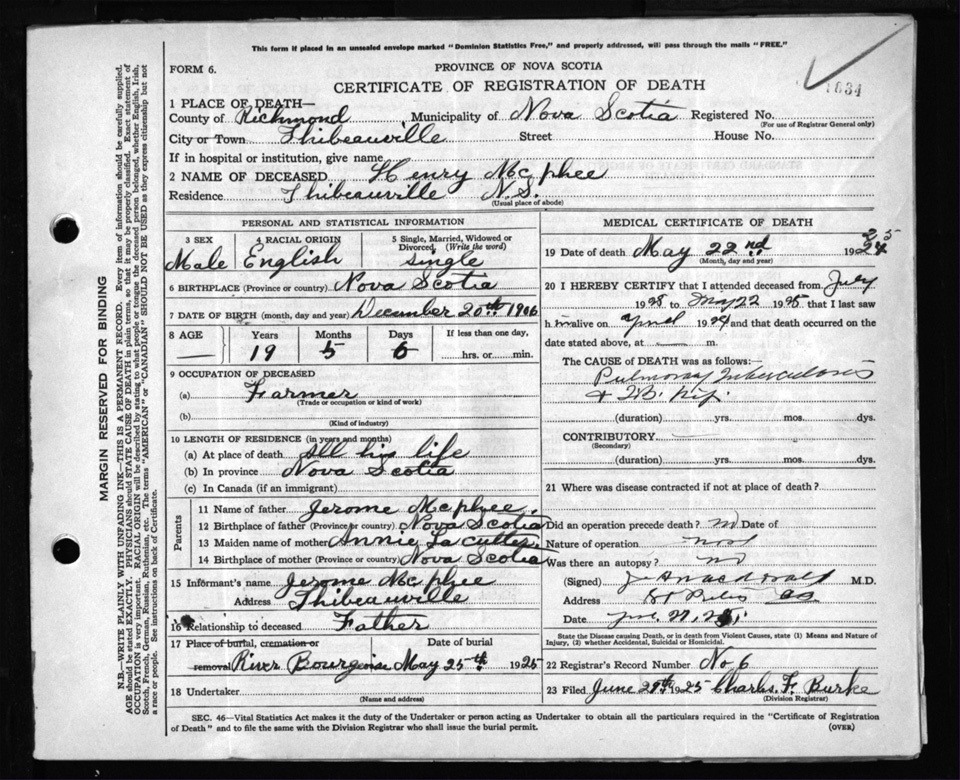 This form if placed in an unsealed envelope marked "Dominion Statistics Free," and properly addressed, will pass through the mails "FREE."
FORM 6.
PROVINCE OF NOVA SCOTIA
CERTIFICATE OF REGISTRATION OF DEATH
1634
1 PLACE OF DEATH—
County of Richmond Municipality of Nova Scotia Registered No.
(For use of Registrar General only)
City or Town Thibeauville Street House No.
If in hospital or institution, give name
2 NAME OF DECEASED Henry Mc phee
Residence Thibeauville N.S.
(Usual place of abode)
PERSONAL AND STATISTICAL INFORMATION
3 SEX Male
4 RACIAL ORIGIN English
5 Single, Married, Widowed or Divorced (Write the word) single
6 BIRTHPLACE (Province or country) Nova Scotia
7 DATE OF BIRTH (month, day and year) December 20th 1906
8 AGE Years Months Days If less than one day,
19 5 6 hrs. or min.
9 OCCUPATION OF DECEASED
(a) Farmer
(Trade or occupation or kind of work)
(b)
(Kind of industry)
10 LENGTH OF RESIDENCE (in years and months)
(a) At place of death All his life
(b) In province Nova Scotia
(c) In Canada (if an immigrant)
Parents
11 Name of father Jerome Mc phee.
12 Birthplace of father (Province or country) Nova Scotia
13 Maiden name of mother Annie La
14 Birthplace of mother (Province or country) Nova Scotia
15 Informant's name Jerome Mc phee
Address Thibeauville
16 Relationship to deceased Father
17 Place of burial, cremation or Date of burial
removal River Bourgeoise May 25th 1925
18 Undertaker
(Name and address)
MEDICAL CERTIFICATE OF DEATH
19 Date of death May 22nd 1925
(Month, day and year)
20 I HEREBY CERTIFY that I attended deceased from July
19 to May 22 1925 that I last saw
h im alive on April 1924 and that death occurred on the
date stated above, at m.
The CAUSE OF DEATH was as follows:
Pulmonary Tuberculosis
& T.B. Hip.
(duration) yrs. mos. dys.
CONTRIBUTORY
(Secondary)
(duration) yrs. mos. dys.
21 Where was disease contracted if not at place of death?
Did an operation precede death? no Date of
Nature of operation
Was there an autopsy? no
(Signed) M.D.
Address St Peters CB
Date 25
State the Disease causing Death, or in death from Violent Causes, state (1) Means and Nature of Injury, (2) whether Accidental, Suicidal or Homicidal.
22 Registrar's Record Number No 6
23 Filed June 29th 1925 Charles F. Burke
(Division Registrar)
SEC. 46—Vital Statistics Act makes it the duty of the Undertaker or person acting as Undertaker to obtain all the particulars required in the "Certificate of Registration
of Death" and to file the same with the Division Registrar who shall issue the burial permit. (OVER)
MARGIN RESERVED FOR BINDING
N.B.—WRITE PLAINLY WITH UNFADING INK—THIS IS A PERMANENT RECORD. Every item of information should be carefully supplied.
AGE should be stated EXACTLY. PHYSICIANS should STATE CAUSE OF DEATH in plain terms, so that it may be properly classified. Exact statement of
OCCUPATION is very important. RACIAL ORIGIN will be described by stating to what people or tongue the deceased person belonged, whether English, Irish,
Scotch, French, German, Russian, Ruthenian, etc. The terms "AMERICAN" or "CANADIAN" SHOULD NOT BE USED as they express citizenship but not
a race or people. See instructions on back of Certificate.